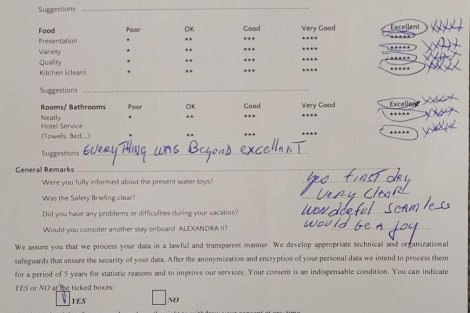 Suggestions
Food Poor OK Good Very Good Excellent
Presentation * ** *** **** *****
Variety * ** *** **** *****
Quality * ** *** **** *****
Kitchen (clean) * ** *** **** *****
Suggestions
Rooms/ Bathrooms Poor OK Good Very Good Excellent
Neatly * ** *** **** *****
Hotel Service
(Towels, Bed...) * ** *** **** *****
Suggestions EVERYTHING WAS BEYOND excellnIT
General Remarks
Were you fully informed about the present water toys? yes FIRST DAY
Was the Safety Briefing clear? VERY CLEAR
Did you have any problems or difficulties during your vacation? WONDERFUL SEAMLESS
Would you consider another stay onboard ALEXANDRA II? Would be a joy
We assure you that we process your data in a lawful and transparent manner. We develop appropriate technical and organizational
safeguards that ensure the security of your data. After the anonymization and encryption of your personal data we intend to process them
for a period of 5 years for statistic reasons and to improve our services. Your consent is an indispensable condition. You can indicate
YES or NO at the ticked boxes:
YES NO